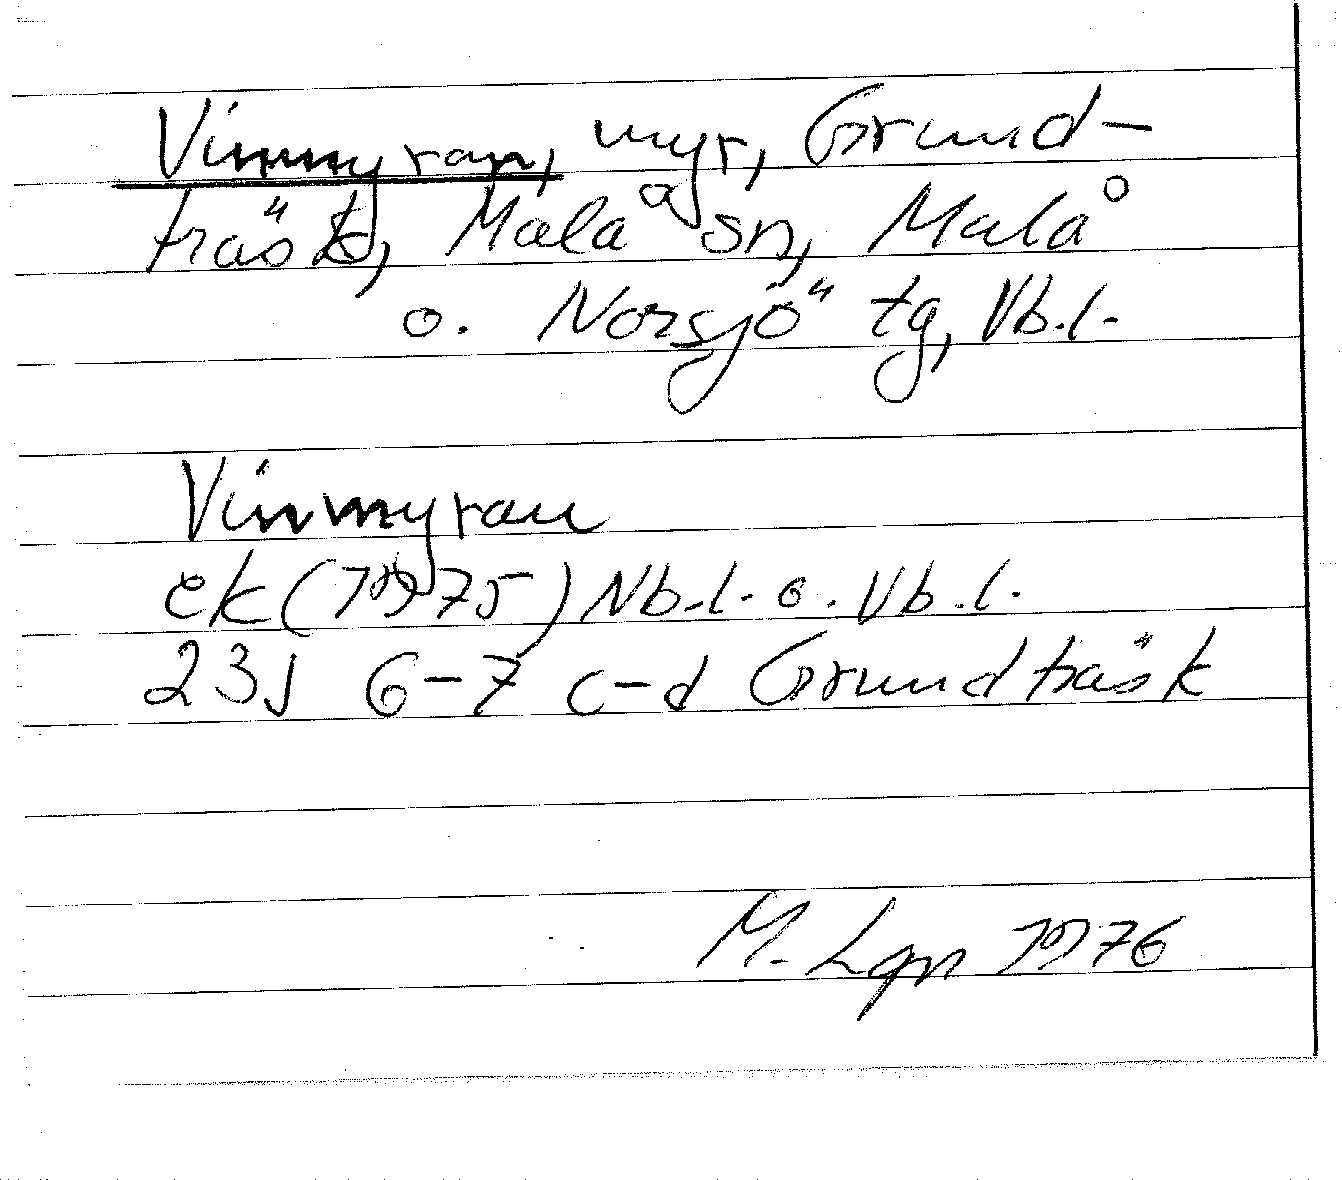 Vinmyran, myr, Grund-
träsk, Malå sn, Malå
o. Norsjö tg, Vb.l.
Vinmyran
ek (1975) Nb.l. o. Vb.l.
23J 6-7 c-d Grundträsk
M. Lgn 1976